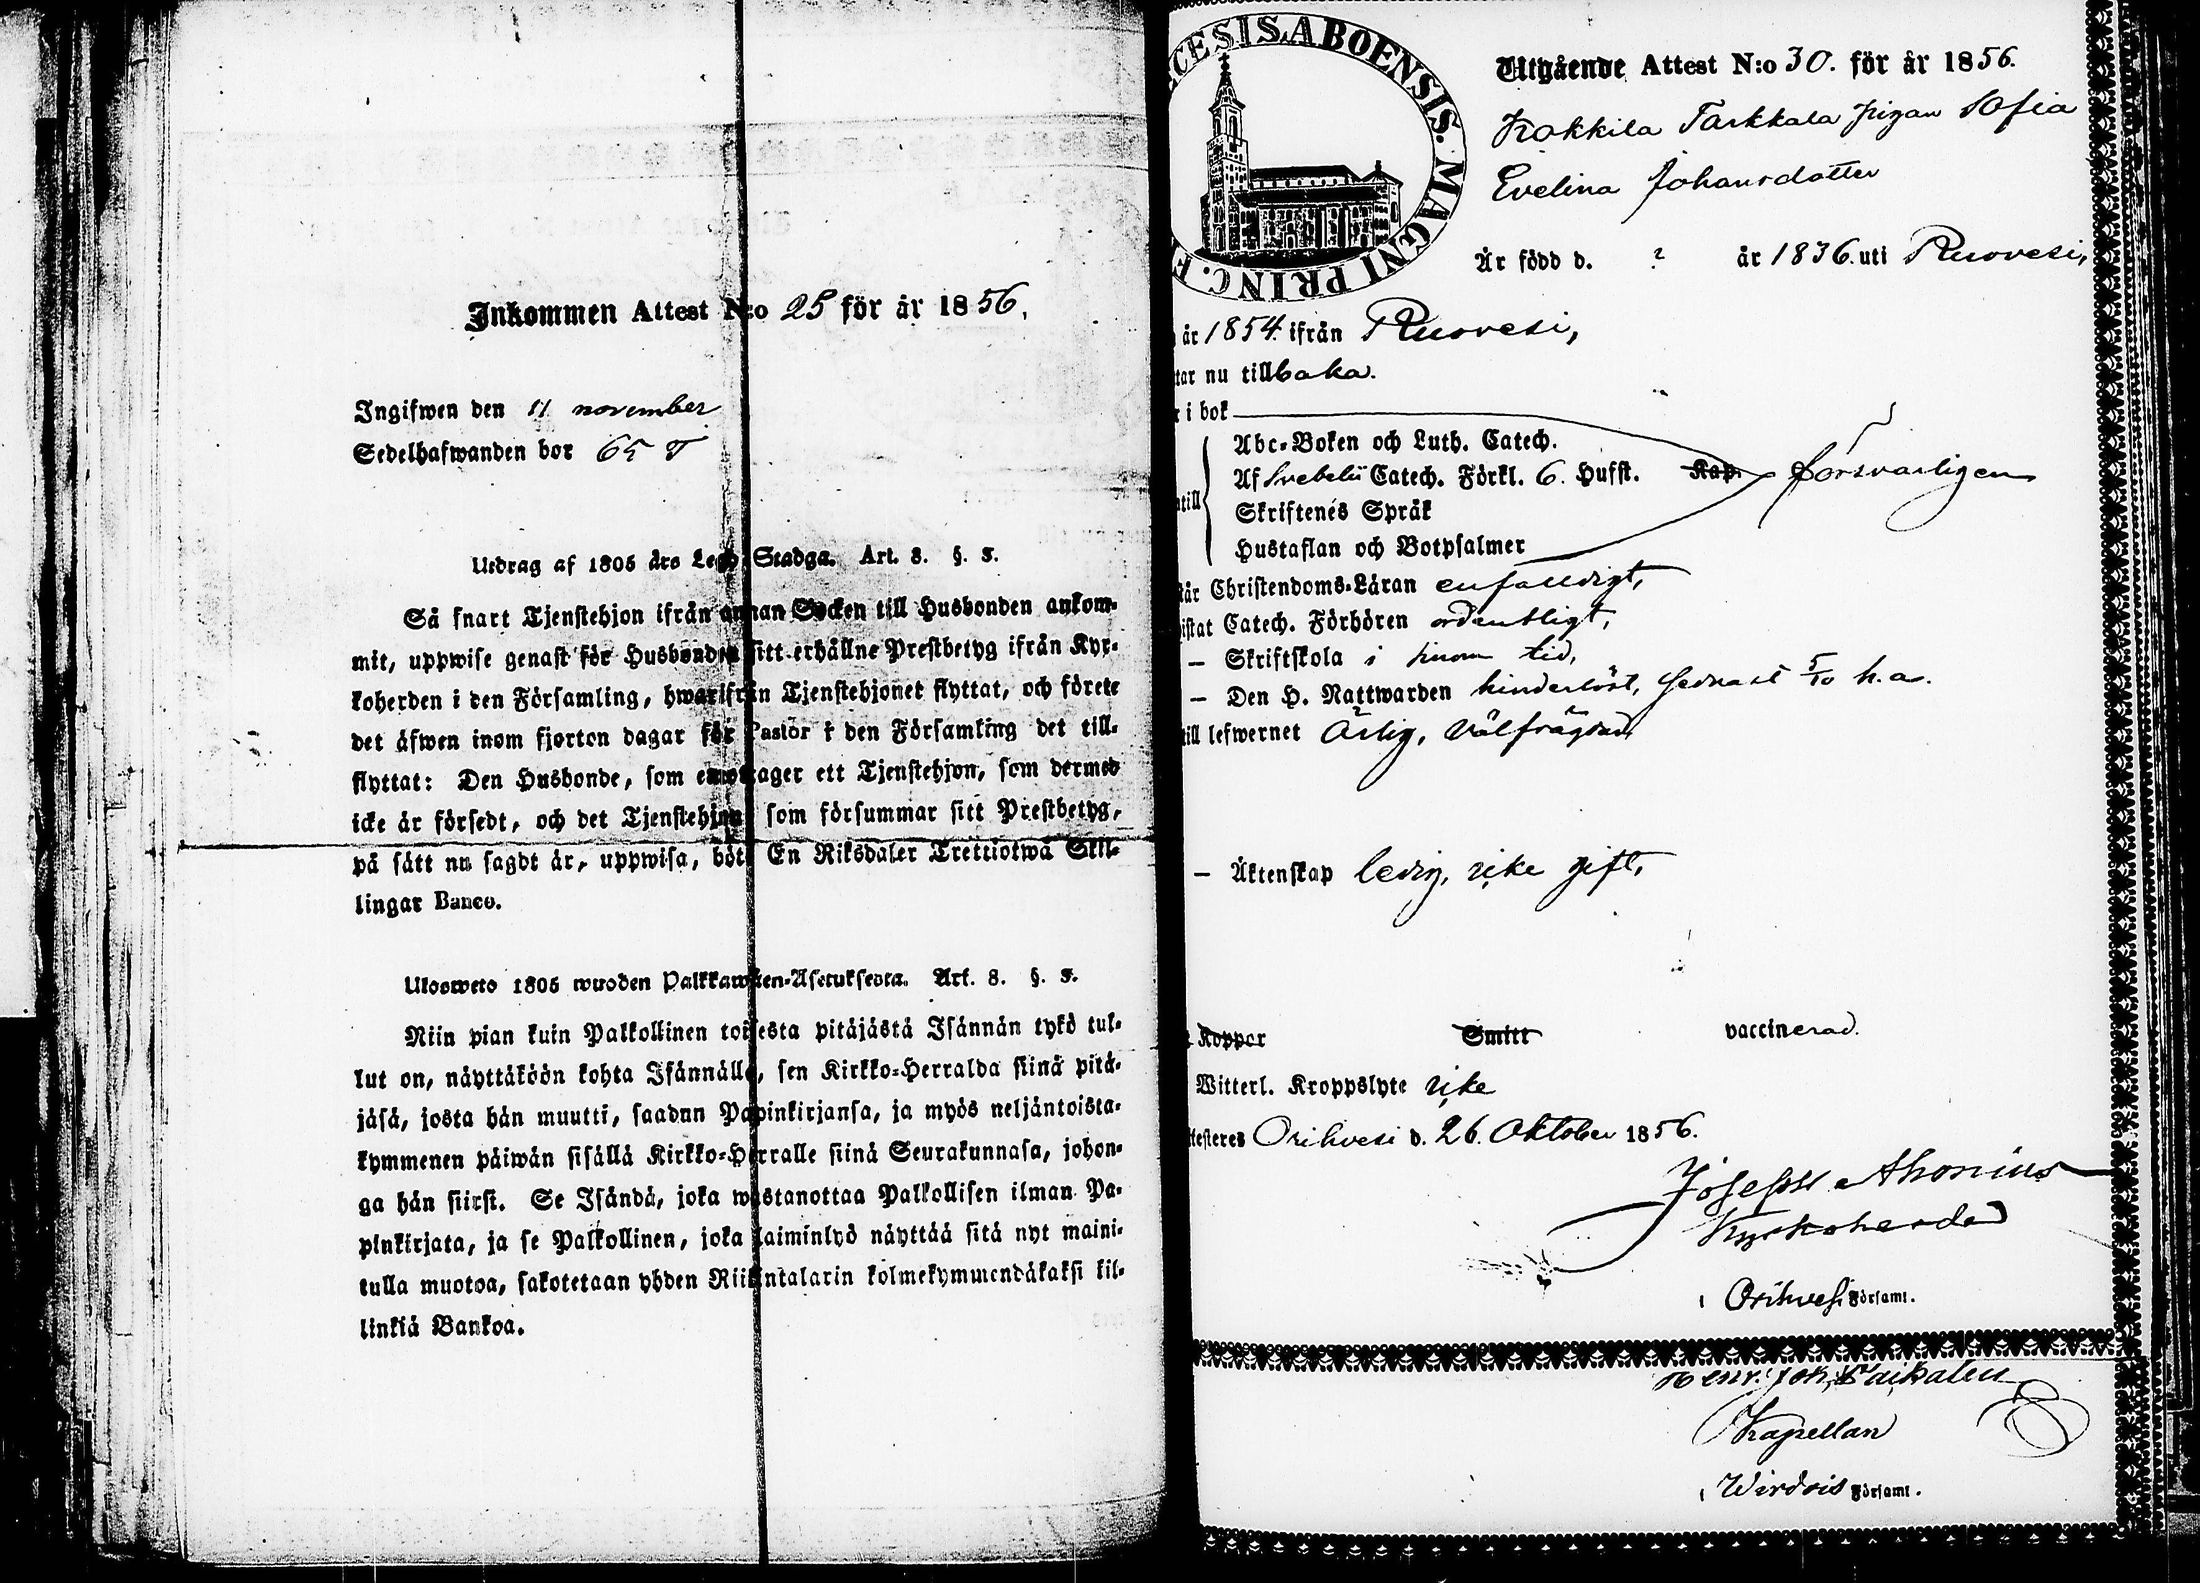 Inkommen Attest N:o 25 för år 1856.
Ingifwen den 11 november
Sedelhafwanden bor 65 T
Utdrag af 1805 års Lego Stadga. Art. 8. §. 5.
Så snart Tjenstehjon ifrån annan Socken till Husbonden ankom-
mit, uppwise genast för Husbonden sitt erhållne Prestbetyg ifrån Kyr-
koherden i den Församling, hwarifrån Tjenstehjonet flyttat, och förete
det äfwen inom fjorton dagar för Pastor i den Församling det till-
flyttat: Den Husbonde, som emottager ett Tjenstehjon, som dermed
icke är försedt, och det Tjenstehjon som försummar sitt Prestbetyg,
på sätt nu sagdt är, uppwisa, böte En Riksdaler Trettiotwå Skil-
lingar Banco.
Ulosweto 1805 wuoden Palkkawäen-Asetuksesta. Art. 8. §. 5.
Niin pian kuin Palkollinen toisesta pitäjästä Isännän tykö tul-
lut on, näyttäköön kohta Isännälle, sen Kirkko-Herralda siinä pitä-
jäsä, josta hän muutti, saadun Papinkirjansa, ja myös neljäntoista-
kymmenen päiwän sisällä Kirkko-Herralle siinä Seurakunnasa, johon-
ga hän siirst. Se Isändä, joka wastanottaa Palkollisen ilman Pa-
pinkirjata, ja se Palkollinen, joka laiminlyö näyttää sitä nyt maini-
tulla muotoa, sakotetaan yhden Riikintalarin kolmekymmendäkaksi kil-
linkiä Bankoa.
CESIS ABOENSIS. MAGNI PRINC. F
Utgående Attest N:o 30. för år 1856.
Kokkila Tarkkala pigan Sofia
Evelina Johansdotter
Är född d. ? år 1836. uti Ruovesi,
år 1854. ifrån Ruovesi,
tar nu tillbaka.
i bok
Abc-Boken och Luth. Catech.
Af Svebelii Catech. Förkl. 6. Hufst. Kap. försvarligen
till
Skriftenes Språk
Hustaflan och Botpsalmer
tår Christendoms-Läran enfalldigt,
istat Catech. Förhören ordentligt,
— Skriftskola i sinom tid,
— Den H. Nattwarden hinderlöst, sednast 5/10 h.a.
till lefwernet Ärlig, välfrägdad,
— Äktenskap ledig, icke gift,
Koppor Smitt vaccinerad.
Witterl. Kroppslyte icke
testeres Orihvesi d. 26. Oktober 1856.
Joseph Ahonius
Kyrkoherde
i Orihvesi Församl.
Henr. Joh.
Kapellan
i Wirdois Församl.